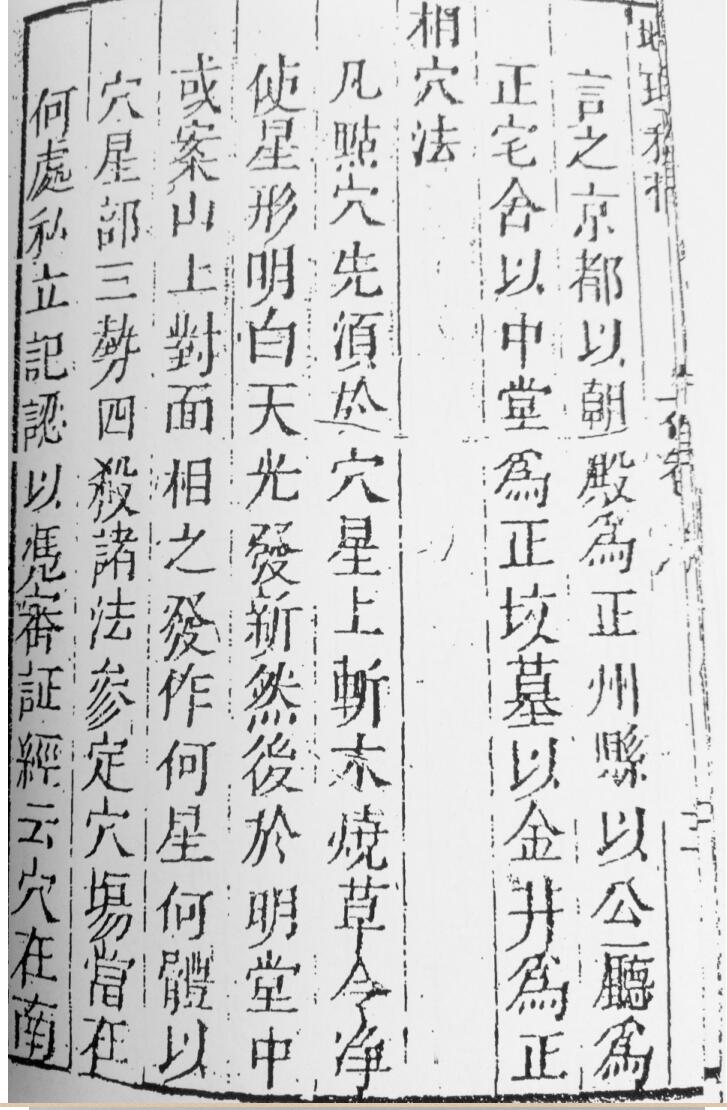 言之京都以朝殿爲正州縣以公廳爲
正宅舍以中堂爲正坟墓以金井爲正
相穴法
凡點穴先須於穴星上斬木燒草令净
使星形明白天光發新然後於明堂中
或案山上對面相之發作何星何體以
穴星部三勢四殺諸法參定穴塲當在
何處私立記認以凴審証經云穴在南